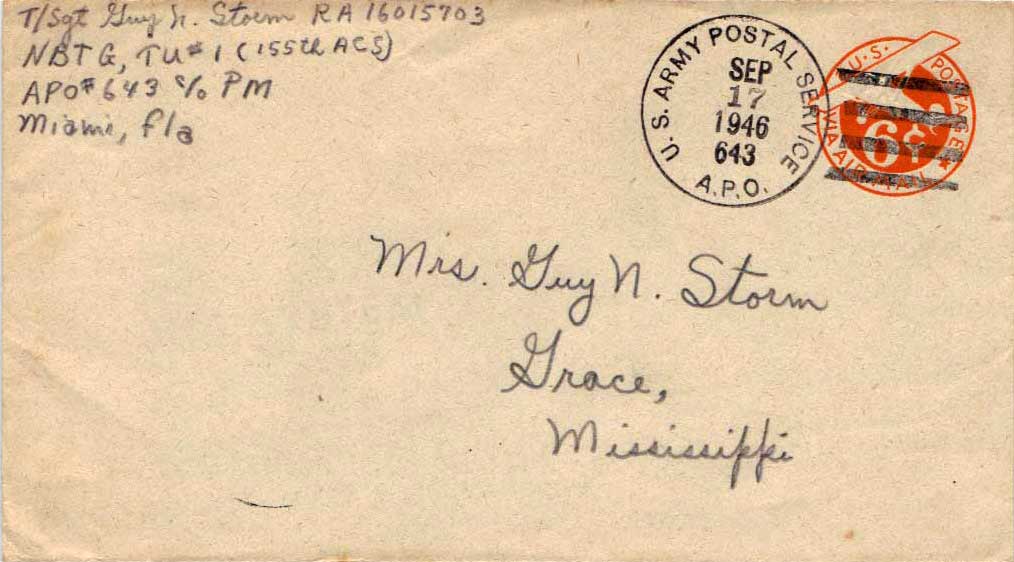 T/Sgt Guy N. Storm RA 16015703
NBTG, TU#1 (155th ACS)
APO# 643 c/o PM
Miami, Fla
U.S. ARMY POSTAL SERVICE
SEP
17
1946
643
A.P.O.
U.S. POSTAGE
6¢
VIA AIR MAIL
Mrs. Guy N. Storm
Grace,
Mississippi